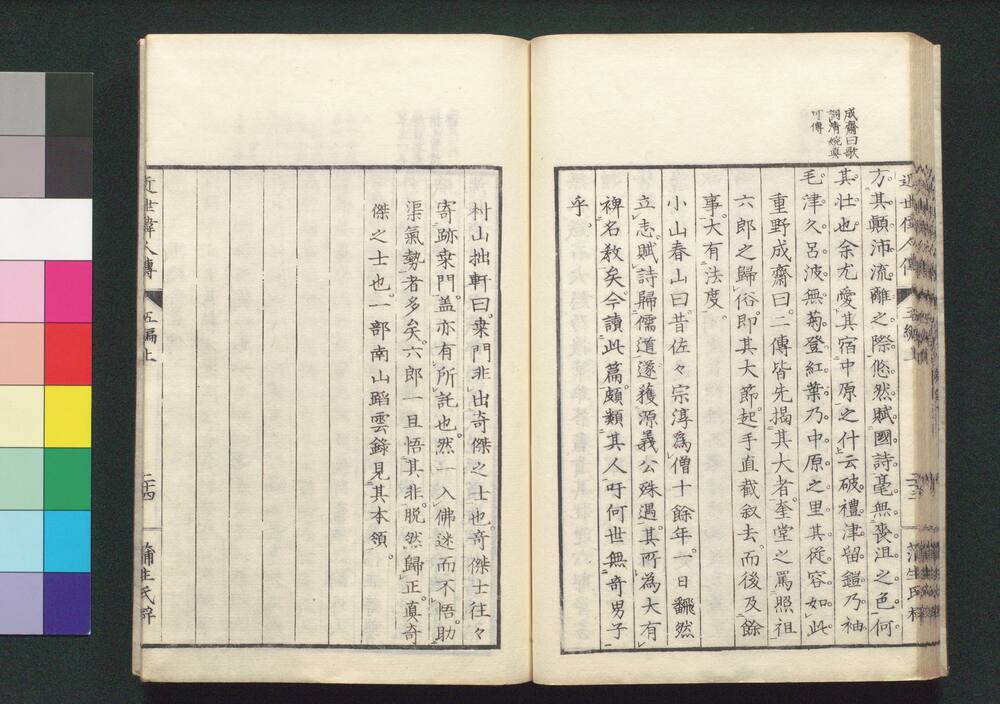 成齋曰歌
詞清婉眞
可傳
方其顚沛流離之際悠然賦國詩毫無喪沮之色何
其壯也余尤愛其宿中原之什云破禮津留鎧乃袖
毛津久呂波無菊登紅葉乃中原之里其從容如此
重野成齋曰二傳皆先揭其大者奎堂之罵照祖
六郎之歸俗即其大節起手直截叙去而後及餘
事大有法度
小山春山曰昔佐々宗淳爲僧十餘年一日飜然
立志賦詩歸儒道遂獲源義公殊遇其所爲大有
裨名敎矣今讀此篇頗類其人吁何世無奇男子
乎
村山拙軒曰桒門非出奇傑之士也奇傑士往々
寄跡桒門盖亦有所託也然一入佛迷而不悟助
渠氣勢者多矣六郎一旦悟其非脱然歸正眞奇
傑之士也一部南山蹈雲錄見其本領
近世偉人傳
五編上
二十四
蒲生氏梓